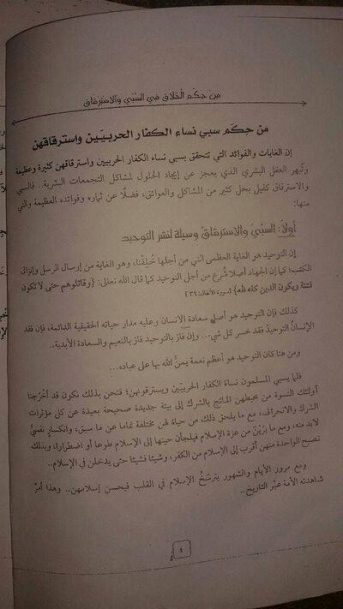 من حكم الخلاق في السبي والاسترقاق
من حكم سبي نساء الكفار الحربيين واسترقاقهن
إن الغايات والفوائد التي تتحقق بسبي نساء الكفار الحربيين واسترقاقهن كثيرة وعظيمة
وتبهر العقل البشري الذي يعجز عن إيجاد الحلول لمشاكل التجمعات البشرية. فالسبي
والاسترقاق كفيل بحل كثير من المشاكل والعوائق، فضلًا عن ثماره وفوائده العظيمة والتي
منها:
أولًا: السَّبْيُ والاسترقاقُ وسيلة لنشر التوحيد
إن التوحيد هو الغاية العظمى التي من أجلها خُلِقْنا، وهو الغاية من إرسال الرسل وإنزال
الكتب؛ كما إن الجهاد أصلًا شُرع من أجل التوحيد كما قال الله تعالى: {وقاتلوهم حتى لا تكون
فتنة ويكون الدين كله لله} [سورة الأنفال:٣٩]
كذلك فإن التوحيد هو أصلُ سعادة الإنسان وعليه مدار حياته الحقيقية الدائمة، فإن فقد
الإنسانُ التوحيدَ فقد خسر كل شيء... وإن فاز بالتوحيد فاز بالنعيم والسعادة الأبدية.
ومن هنا كان التوحيد هو أعظم نعمة يمنُّ الله بها على عباده...
فلما يسبي المسلمون نساء الكفار الحربيين ويسترقونهن؛ فنحن بذلك نكون قد أخرجنا
أولئك النسوة من محيطهن المائج بالشرك إلى بيئة جديدة صحيحة بعيدة عن كل مؤثرات
الشرك والانحراف، مع ما يلحق ذلك من حياة لهن مختلفة تماما عن ما سبق، وانكسارٍ نفسيٍّ
لابد منه، ومع ما يَرَيْنَ من عزة الإسلام فيلجأن حينها إلى الإسلام طوعا أو اضطرارا، وبذلك
تصبح الواحدة منهن أقرب إلى الإسلام من الكفر، وشيئا فشيئا حتى يدخلن في الإسلام..
ومع مرور الأيام والشهور يترسَّخُ الإسلام في القلب فيحسن إسلامهن.. وهذا أمرٌ
شاهدته الأمة عبْر التاريخ..
٤